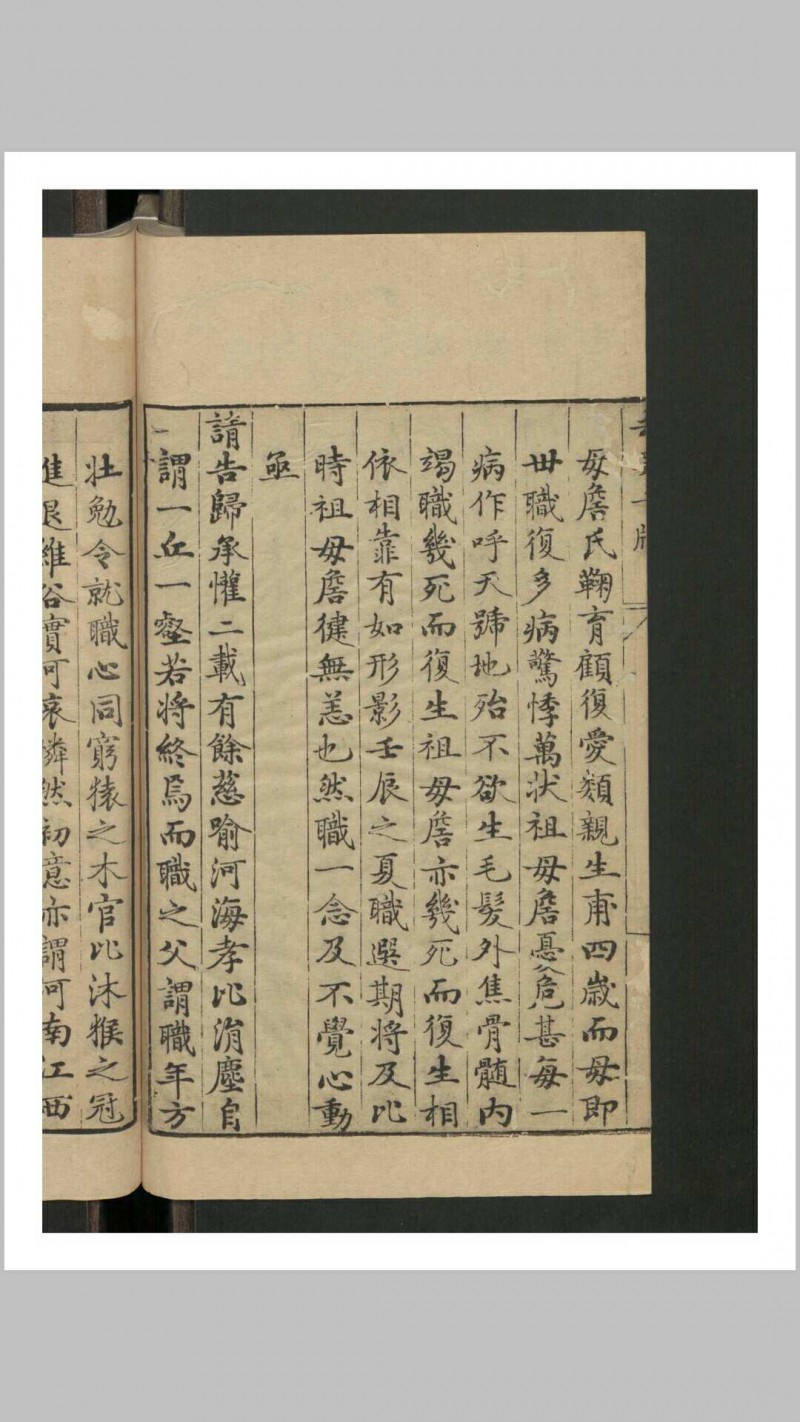 母詹氏鞠育顧復愛纇親生甫四歲而母即
毋職復多病驚悸萬狀祖母詹憂危甚每一
病作呼天號地殆不欲生毛髮外焦骨髓内
竭職幾死而復生祖母詹亦幾死而復生相
依相靠有如形影壬辰之夏職選期將及比
時祖母詹徤無恙也然職一念及不覺心動
亟
請告歸承懽二載有餘慈喻河海孝比涓塵自
謂一丘一壑若将終焉而職之父謂職年方
壯勉令就職心同窮猿之木官比沐猴之冠
進退維谷實可哀憐然初意亦謂河南江西